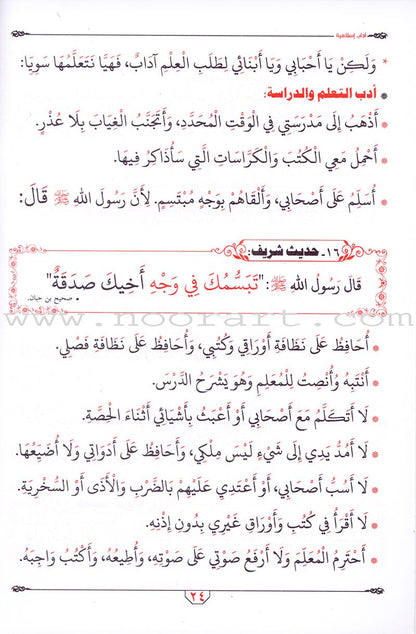 آداب إسلامية
* وَلَكِنْ يَا أَحْبَابِي وَيَا أَبْنَائِي لِطَلَبِ الْعِلْمِ آدَابٌ، فَهَيَّا نَتَعَلَّمُهَا سَوِيًا:
• أدب التعلم والدراسة:
• أَذْهَبُ إِلَى مَدْرَسَتِي فِي الْوَقْتِ الْمُحَدَّدِ، وَأَتَجَنَّبُ الْغِيَابَ بِلَا عُذْرٍ.
• أَحْمِلُ مَعِي الْكُتُبَ وَالْكَرَّاسَاتِ الَّتِي سَأُذَاكِرُ فِيهَا.
• أُسَلِّمُ عَلَى أَصْحَابِي، وَأَلْقَاهُمْ بِوَجْهٍ مُبْتَسِمٍ. لِأَنَّ رَسُولَ اللهِ ﷺ قَالَ:
١٦- حديث شريف:
قَالَ رَسُولُ اللهِ ﷺ: "تَبَسُّمُكَ فِي وَجْهِ أَخِيكَ صَدَقَةٌ"
• صحيح بن حبان.
www.noorart.com
• أُحَافِظُ عَلَى نَظَافَةِ أَوْرَاقِي وَكُتُبِي، وَأُحَافِظُ عَلَى نَظَافَةِ فَصْلِي.
• أَنْتَبِهُ وَأُنْصِتُ لِلْمُعَلِّمِ وَهُوَ يَشْرَحُ الدَّرْسَ.
• لَا أَتَكَلَّمُ مَعَ أَصْحَابِي أَوْ أَعْبَثُ بِأَشْيَائِي أَثْنَاءَ الْحِصَّةِ.
• لَا أَمُدُّ يَدِي إِلَى شَيْءٍ لَيْسَ مِلْكِي، وَأُحَافِظُ عَلَى أَدَوَاتِي وَلَا أُضَيِّعُهَا.
• لَا أَسُبُّ أَصْحَابِي، أَوْ أَعْتَدِي عَلَيْهِمْ بِالضَّرْبِ وَالْأَذَى أَوْ السُّخْرِيَةِ.
• لَا أَقْرَأُ فِي كُتُبِ وَأَوْرَاقِ غَيْرِي بِدُونِ إِذْنِهِ.
• أَحْتَرِمُ الْمُعَلِّمَ وَلَا أَرْفَعُ صَوْتِي عَلَى صَوْتِهِ، وَأُطِيعُهُ، وَأَكْتُبُ وَاجِبَهُ.
٢٤